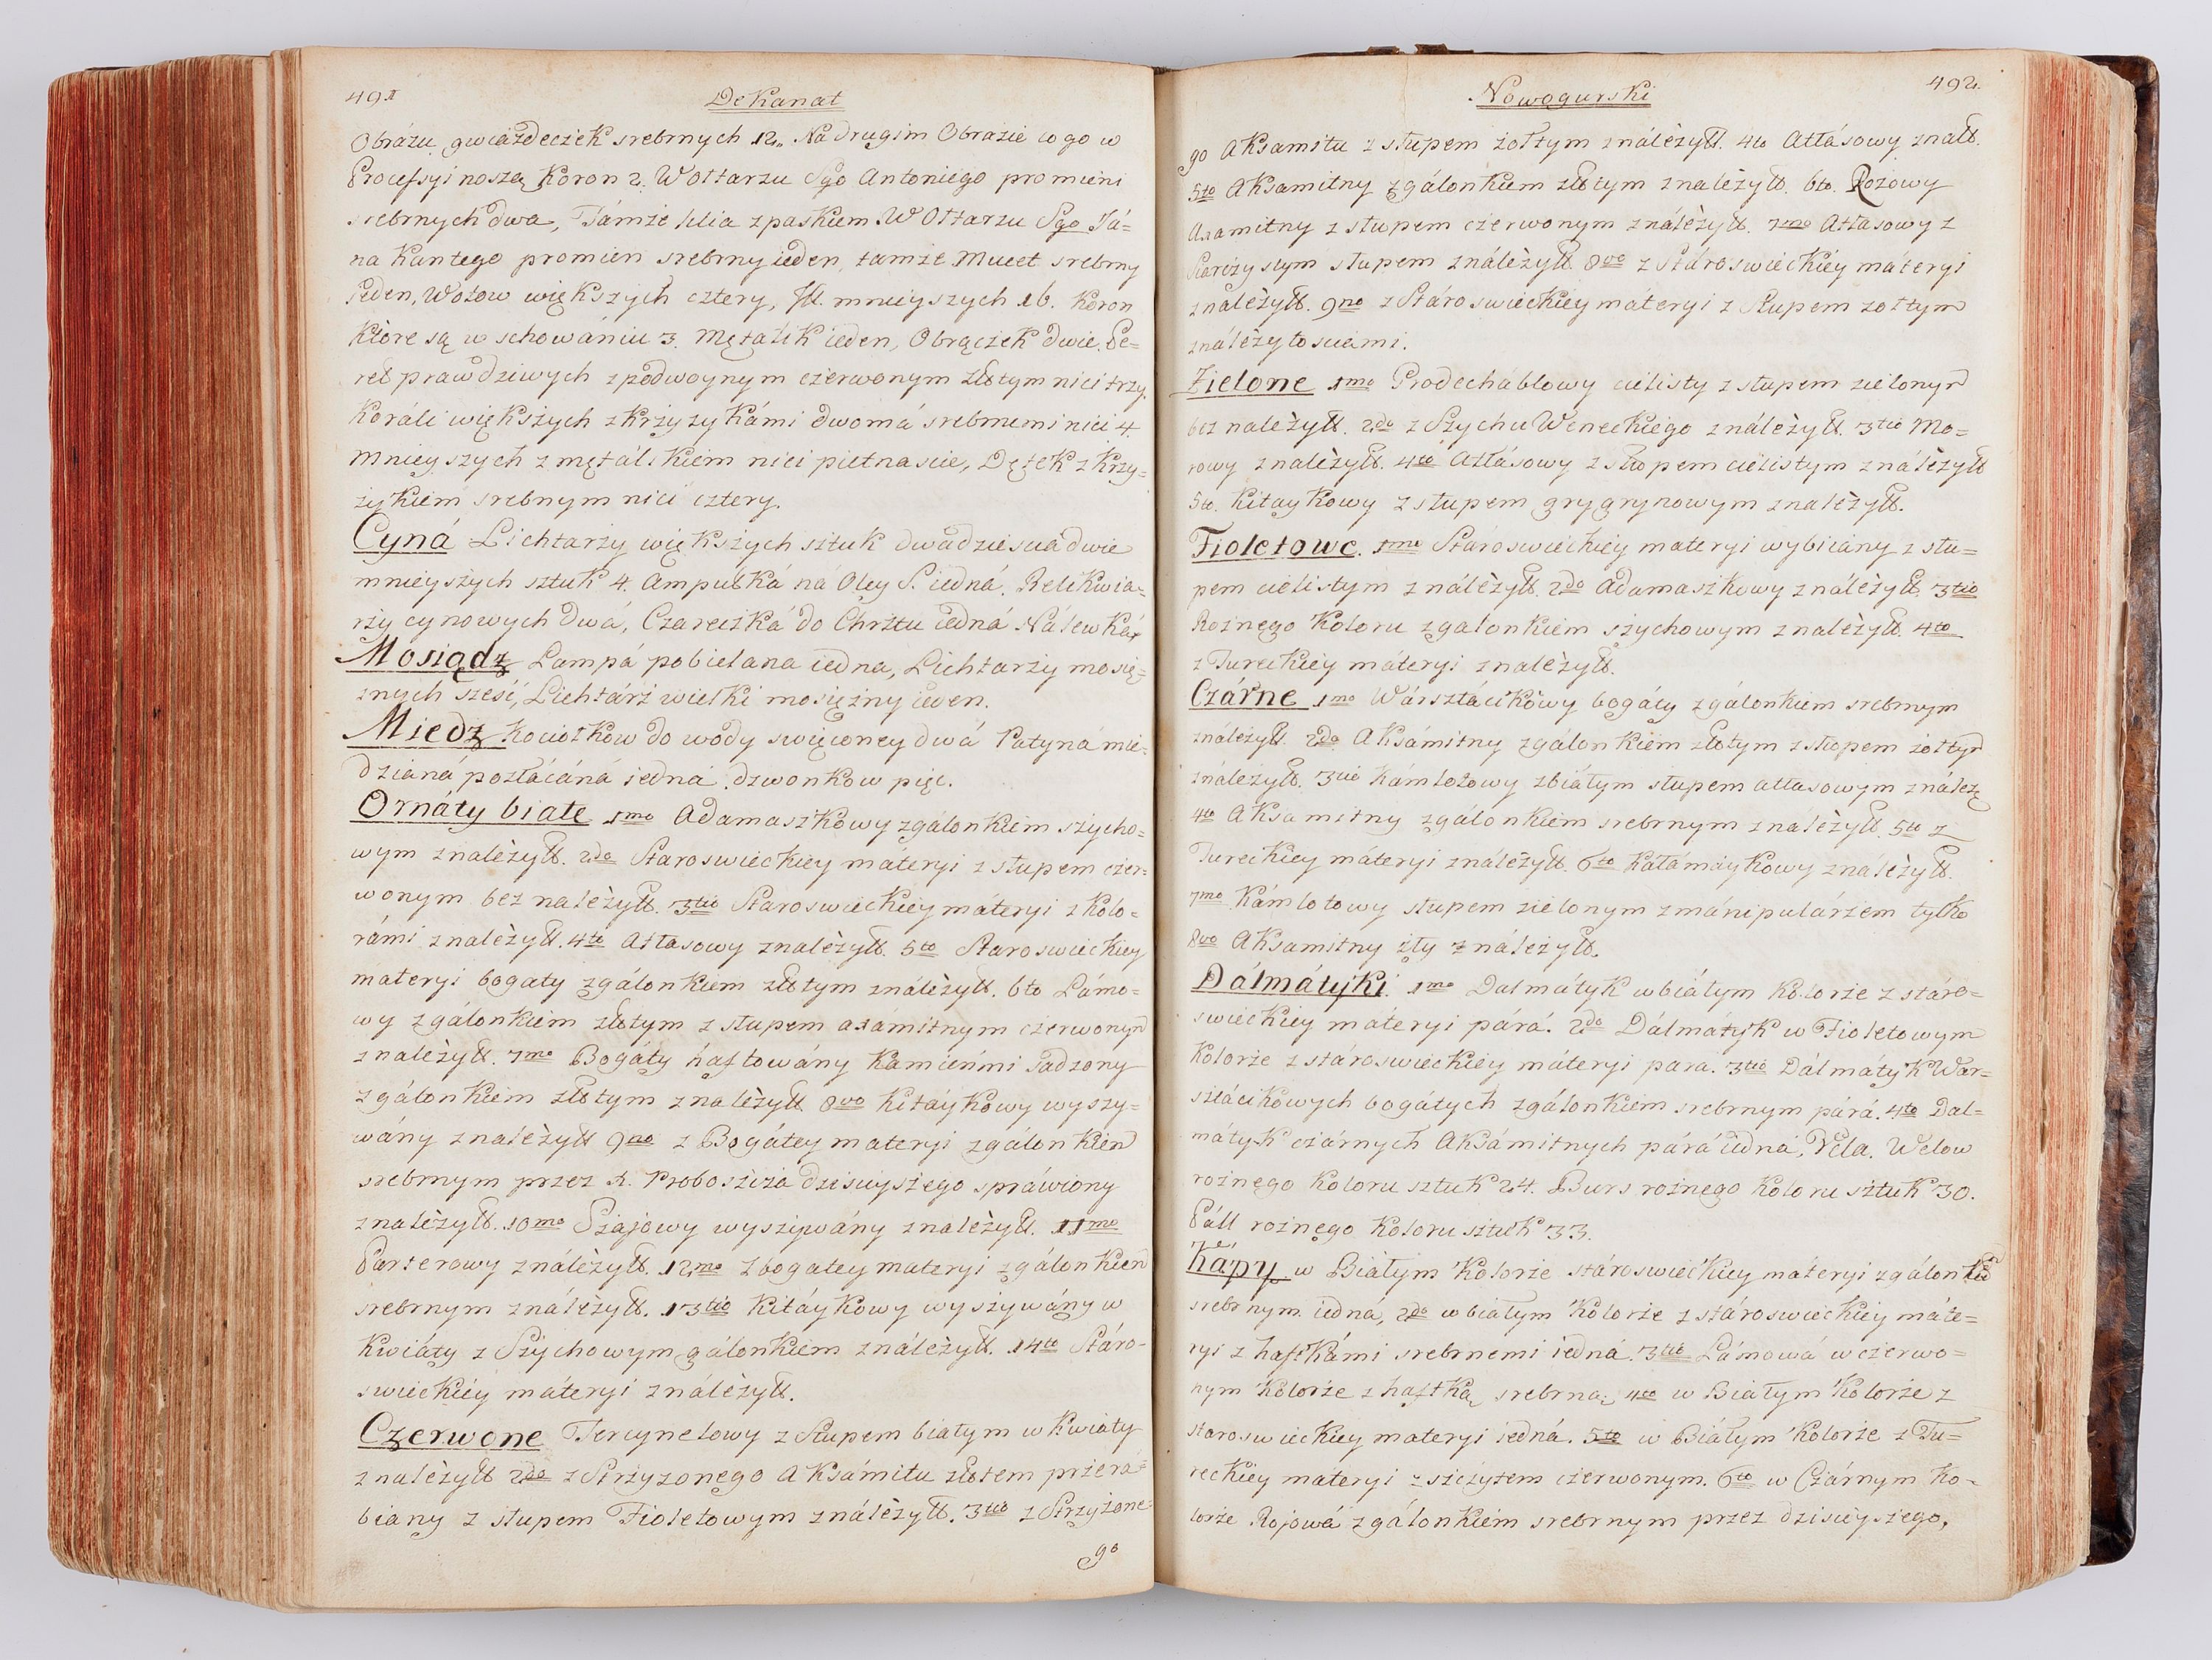 491
Dekanat
Obrázu gwiażdeczek srebrnych 12,, Na drugim Obrazie co go w
Processyi noszą Koron 2. W Ołtarzu Sgo Antoniego promieni
srebrnych dwa, Támże lilia z paskiem W Ołtarzu Sgo Já=
na Kantego promien srebrny ieden, tamże Mucet srebrny
ieden, Wotow większych cztery, mnieyszych 16. Koron
które są w schowániu 3. Mętálik ieden, Obrączek dwie. Pe=
reł prawdziwych z podwoynym czerwonym złłotym nici trzy.
Koráli większych z krzyzykámi dwomá srebrnemi nici 4.
Mnieyszych z mętálikiem nici pietnascie, Dętek z krzy=
żykiem srebnym nici cztery.
Cyná Lichtarży większych sztuk dwadziesciá dwie
mnieyszych sztuk 4. Ampułká ná Oley S. iedná. Relikwia=
rży cynowych dwá, Czareczká do Chrztu iedná Nálewká
Mosiądz Lampá pobielana iedna, Lichtarży mosię=
żnych szesć, Lichtárż wielki mosiężny ieden.
Miedz Kociołkow do wody swięconey dwá Patyná mie=
dzianá pozłácáná iedná dzwonkow pięc.
Ornáty białe 1mo Adamaszkowy z gálonkiem szycho=
wym z należytt. 2do Staroswieckiey máteryi z słupem czer=
wonym bez należytt. 3tio Staroswieckiey máteryi z kolo=
rámi z należytt. 4to Atłasowy z należytt. 5to Staroswieckiey
materyi bogaty z gálonkiem złłotym z należytt. 6to Lámo=
wy z gálonkiem złłotym z słupem axámitnym czerwonym
z należytt. 7mo Bogáty háftowány Kamienmi sadzony
z gálonkiem złłotym z należytt 8vo Kitáykowy wyszy=
wány z należytt 9no z Bogátey materyi z gálonkiem
srebrnym przez X. Proboszcza dzisieyszego spráwiony
z należytt. 10mo Szájowy wyszywány z należytt. 11mo
Parterowy z należytt. 12mo z bogatey materyi z gálonkiem
srebrnym z należytt. 13tio Kitáykowy wyszywány w
kwiáty z Szychowym gálonkiem z należytt. 14to Stáro-
swieckiéy máteryi z należytt.
Czerwone Tercynelowy z Słupem białym w kwiáty
z należytt 2do z Strzyzonego Aksámitu złłotem przera=
biany z słupem Fioletowym z należytt. 3tio z Strzyżone=
go
492
Nowogurski
go Aksamitu z słupem żołtym z należytt. 4to Atłásowy z nał
5to Aksamitny z gálonkiem złłotym z należytt. 6to. Rożowy
Axamitny z słupem czerwonym z należytt. 7mo Atłasowy z
słupem z należytt 8vo z Stároswieckiéy máteryi
z należytt. 9no z Stároswieckiey máteryi z Słupem zołtym
z należytosciami.
Zielone 1mo cielisty z słupem zielonym
bez należytt. 2do z Szychu Weneckiego z należytt. 3tio Mo=
rowy z należytt. 4to Atłásowy z słupem cielistym z należytt
5to. Kitaykowy z słupem grygrynowym z należytt.
Fioletowe. 1mo Staroswieckiey materyi wybiciany z słu=
pem cielistym z należytt. 2do Adamaszkowy z należytt. 3tio
Rożnego Koloru z galonkiem szychowym z należytt. 4to
z Tureckiey máteryi z należytt.
Czárne 1mo Wársztácikowy bogáty z gálonkiem srebrnym
z należytt. 2do. Aksámitny z gálonkiem złłotym z słupem żołtym
z należytt. 3tio Kámlotowy z białym słupem atłasowym z należ
4to Aksamitny z gálonkiem srebrnym z należytt. 5to z
Tureckiey máteryi z należytt. 6to Kałamáykowy z należytt.
7mo Kámlotowy słupem zielonym z mánipulárżem tylko
8vo Aksamitny zły z należytt.
Dálmátyki. 1mo Dalmátyk w białym Kolorze z stáro=
swieckiey máteryi párá. 2do Dálmátyk w Fioletowym
Kolorże z stároswieckiéy máteryi para. 3tio Dálmátyk War=
sztácikowych bogátych z gálonkiem srebrnym párá. 4to Dal=
mátyk czárnych Aksámitnych párá iedná, Vela. Welow
rożnego Koloru sztuk 24. Burs rożnego Koloru sztuk 30.
Páll rożnego Koloru sztuk 33.
Kápy w Białym Kolorże stároswieckiey materyi z gálonkiem
srebrnym. iedná, 2do w białym Kolorże z stároswieckiéy máte=
ryi z haftkámi srebrnemi iedná. 3tio Lámowá w czerwo=
nym Kolorże z haftką srebrną, 4to w Białym Kolorże z
staroswieckiey materyi iedná. 5to w Białym Kolorże z Tu=
reckiey máteryi z szczytem czerwonym. 6to w Czárnym Ko-
lorże Rojowá z gálonkiem srebrnym przez dzisieyszego,